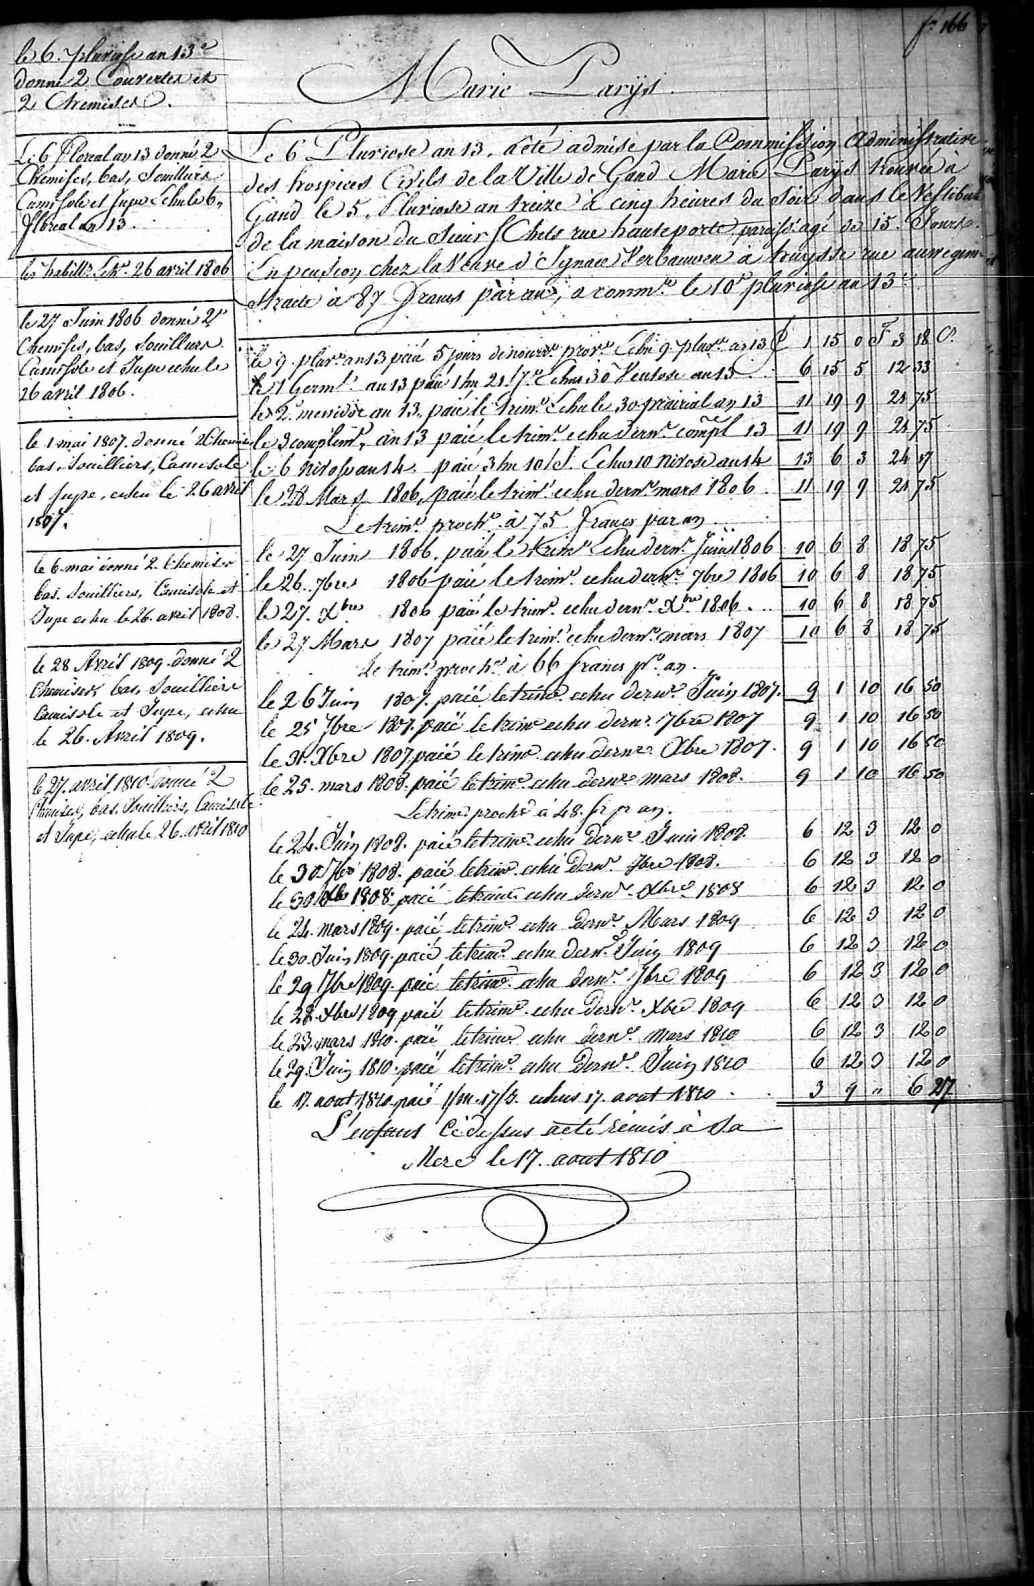 f° 166
Marie Parÿs
le 6. pluviose an 13e
donné 2 Couvertes et
2 Chemises.
Le 6 floreal an 13 donné 2
Chemises, bas, Souilliers
Camisole et Jupe Echu le 6
floreal an 13.
26 avril 1806
le 27 Juin 1806 donné 2
Chemises, bas, Souilliers
Camisole et Jupe echu le
26 avril 1806.
le 1 mai 1807. donné 2 Chemises
bas, Souilliers, Camisole
et Jupe, echu le 26 avril
1807.
le 6 mai donné 2 Chemises
bas, Souilliers, Camisole et
Jupe echu le 26. avril 1808.
le 28 Avril 1809. donné 2
Chemises, bas, Souilliers
Camisole et Jupe, echu
le 26. Avril 1809.
le 27. avril, 1810. donné 2
Chemises, bas, Souilliers, Camisole
et Jupe, echu le 26. avril 1810
Le 6 Pluviose an 13. a été admise par la Commission administrative
des hospices Civils de la Ville de Gand Marie Parÿs trouvée à
Gand le 5. Pluviose an treize à cinq heures du Soir dans le Vestibule
de la maison du Sieur Chels rue hauteporte, agé de 15. Jours.
En pension chez la Veuve d'Ignace Verbauwen à rue
Straete à 87 francs par an, a comm.é le 10e pluviose an 13e
le 9. pluv.e an 13 paié 5 jours de nourr.e prov.e Echu 9. pluv.e an 13 £ 1 15 0 F 3 18 C.
le 1 Germ.l an 13 paié 1 m 21 j.s Echus 30 Ventose an 13 6 15 5 12 33
le 2 messidor an 13, paié le trim.e Echu le 30 prairial an 13 11 19 9 21 75
le 3 complem.e, an 13 paié le trim.e echu dern.r compl 13 11 19 9 21 75
le 6 nivose an 14. paié 3 m 10 j. Echus 10 nivose an 14 13 6 3 24 17
le 28 Mars 1806, paié le trim.e echu dern.r mars 1806 11 19 9 21 75
Le trim.e proch.n à 75 francs par an
le 27 Juin 1806, paié le trim.e Echu dern.r Juin 1806 10 6 8 18 75
le 26. 7bre 1806 paié le trim.e echu dern.r 7bre 1806 10 6 8 18 75
le 27. Xbre 1806 paié le trim.e echu dern.r Xbre 1806 10 6 8 18 75
le 27 Mars 1807 paié le trim.e echu dern.r mars 1807 10 6 8 18 75
Le trim.e proch.n à 66 francs p.r an.
le 26 Juin 1807. paié le trim.e echu dern.r Juin 1807. 9 1 10 16 50
le 25 7bre 1807. paié le trim.e echu dern.r 7bre 1807 9 1 10 16 50
le 31. Xbre 1807 paié le trim.e echu dern.r Xbre 1807. 9 1 10 16 50
le 25. mars 1808. paié le trim.e echu dern.r mars 1808. 9 1 10 16 50
Le trim.e proch.n à 48. fr pr an.
le 24. Juin 1808. paié le trim.e echu dern.r Juin 1808. 6 12 3 12 0
le 30 7bre 1808. paié le trim.e echu dern.r 7bre 1808. 6 12 3 12 0
le 30 Xbre 1808. paié le trim.e echu dern.r Xbre 1808 6 12 3 12 0
le 24. mars 1809. paié le trim.e echu dern.r Mars 1809 6 12 3 12 0
le 30. Juin 1809. paié le trim.e echu dern.r Juin 1809 6 12 3 12 0
le 29 7bre 1809. paié le trim.e echu dern.r 7bre 1809 6 12 3 12 0
le 28. Xbre 1809 paié le trim.e echu dern.r Xbre 1809 6 12 3 12 0
le 23. mars 1810. paié le trim.e echu dern.r mars 1810 6 12 3 12 0
le 29. Juin 1810. paié le trim.e echu dern.r Juin 1810 6 12 3 12 0
le 17. aout 1810. paié 1/m. 17/J. echus 17. aout 1810 3 9 " 6 27
L'enfant Ci dessus a été remis à sa
Mere le 17. aout 1810